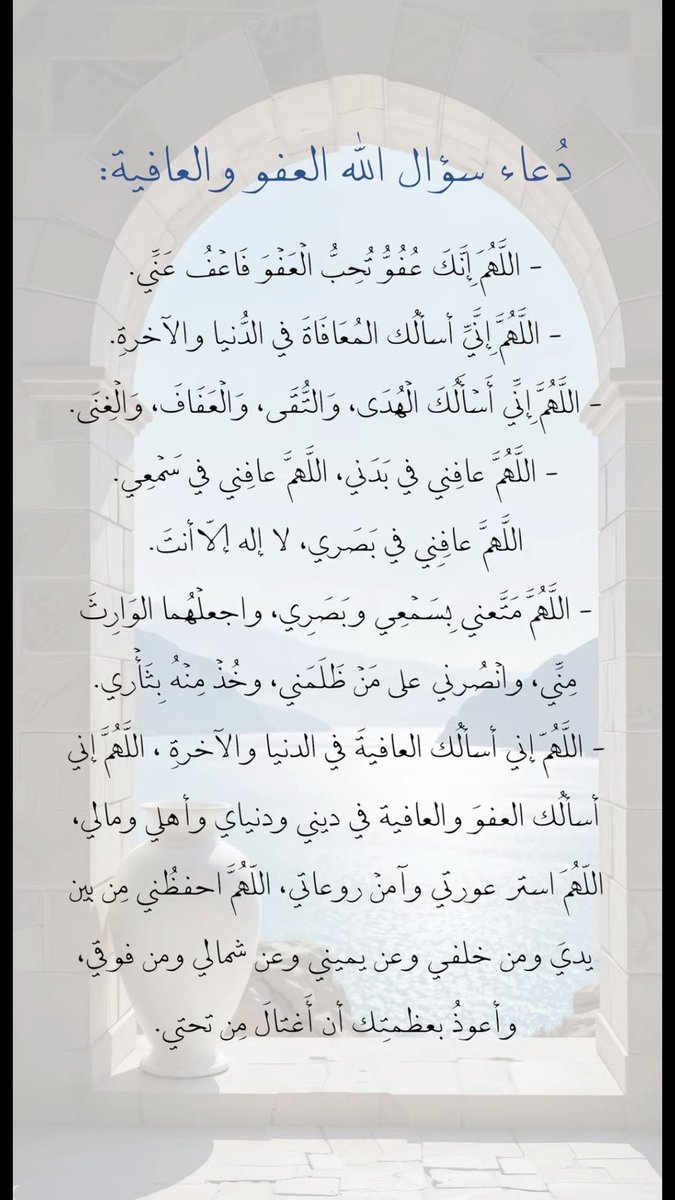 دُعاء سؤال الله العفو والعافية:
- اللَّهُمَ إِنَّكَ عُفُوٌّ تُحِبُّ الْعَفْوَ فَاعْفُ عَنِّي.
- اللَّهُمَّ إِنَّيِّ أسألُك المُعَافَاةَ في الدُّنيا والآخرةِ.
- اللَّهُمَّ إِنِّي أَسْأَلُكَ الْهُدَى، وَالتُّقَى، وَالْعَفَافَ، وَالْغِنَى.
- اللَّهُمَّ عافِني في بَدَني، اللَّهمَّ عافِني في سَمْعِي.
اللَّهمَّ عافِنِي في بَصَري، لا إله إلّا أنتَ.
- اللَّهُمَّ مَتَّعني بِسَمْعِي وبَصَرِي، واجعلْهُما الوَارِثَ
مِنِّي، وانْصُرني على مَنْ ظَلَمَني، وخُذْ مِنْهُ بِثَأْري.
- اللَّهُمّ إني أسألُك العافيةَ في الدنيا والآخرةِ ، اللَّهُمَّ إني
أسألُك العفوَ والعافية في ديني ودنياي وأهلي ومالي،
اللّهُمَ استر عورتي وآمنْ روعاتي، اللّهُمَّ احفظُني مِن بين
يديَ ومن خلفي وعن يميني وعن شمالي ومن فوقي،
وأعوذُ بعظمتِك أن أَغتالَ مِن تحتي.